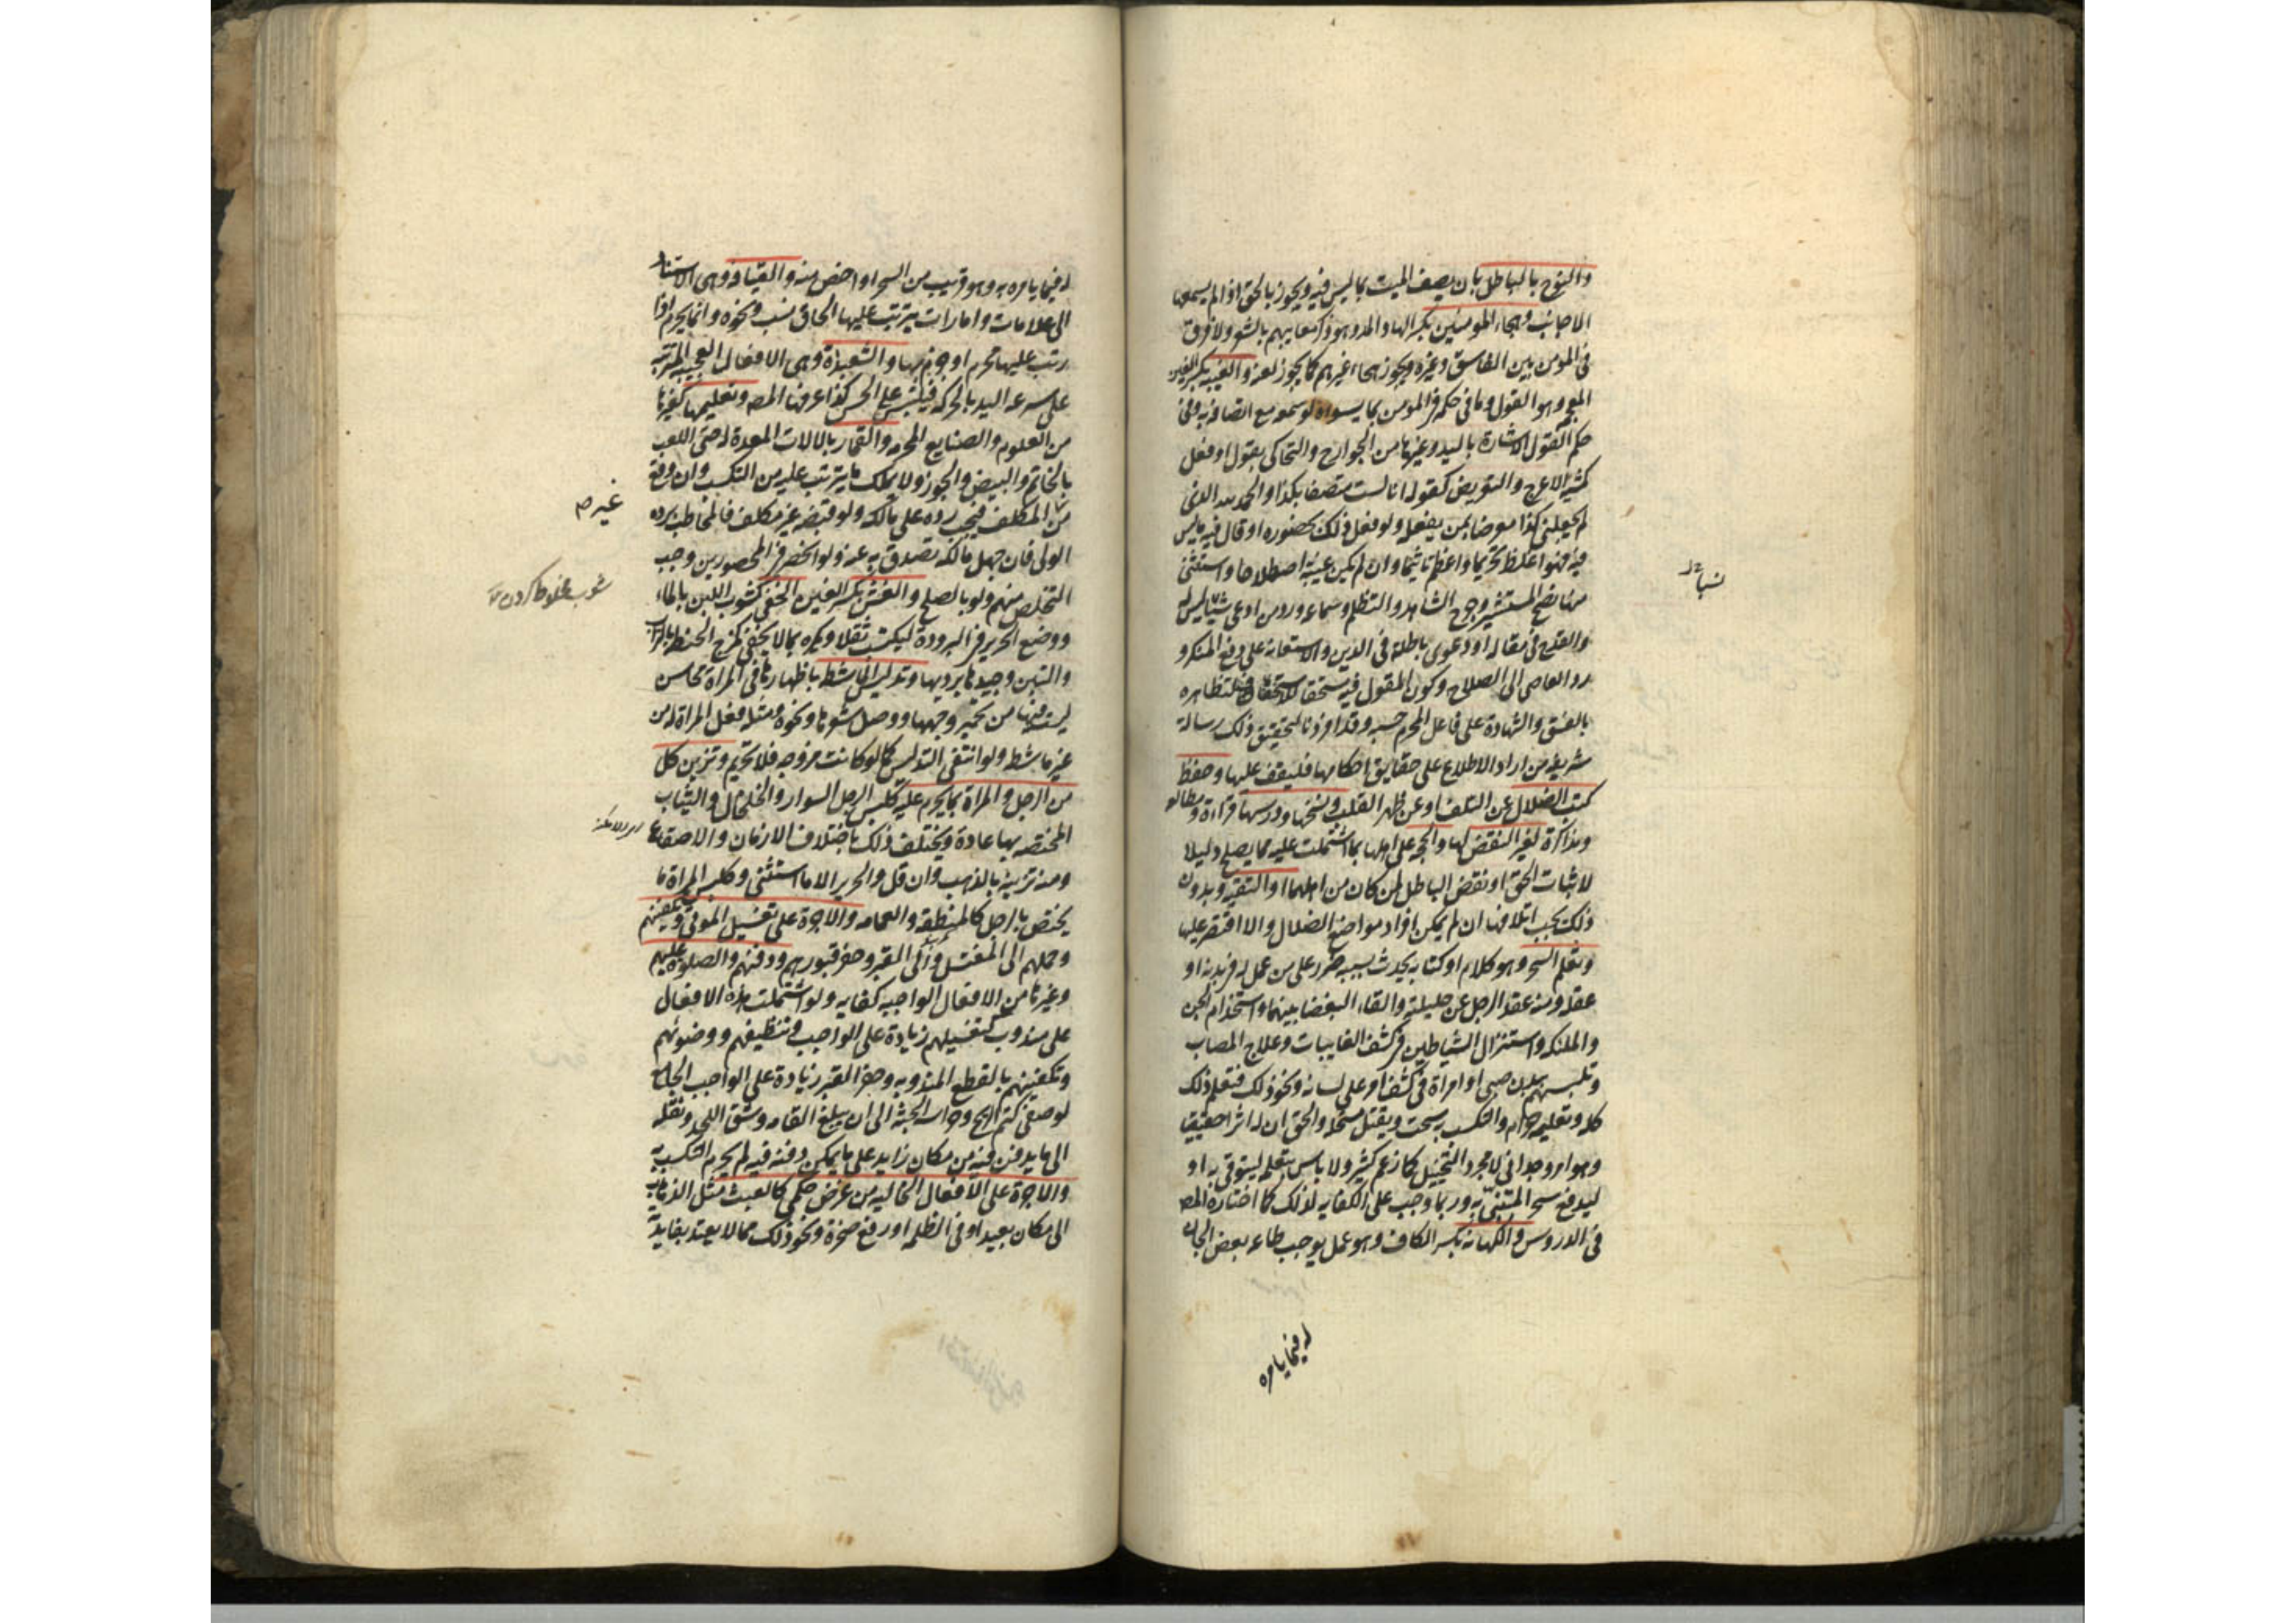 والنوح بالباطل بان يصف الميت بما ليس فيه ويجوز بالحق اذا لم يسمعها
الاجانب وهجاء المومنين بكسر الهاء والمد وهو ذكر معايبهم بالشعر ولا فرق
في المومن بين الفاسق وغيره ويجوز هجاء غيرهم كما يجوز لعنه والغيبه بكسر الغين
المعجمه وهو القول وما في حكمه في المومن بما يسوءه لو سمعه مع اتصافه به وفي
حكم القول الاشارة باليد وغيرها من الجوارح والتحاكي بقول او فعل
كمشية الاعرج والتعريض كقوله انا لست متصفا بكذا والحمد لله الذي
لم يجعلني كذا معرضا بمن يفعله ولو فعل ذلك بحضوره او قال فيه ما ليس
فيه فهو اغلظ تحريما واعظم تاثيما وان لم يكن غيبة اصطلاحا واستثنى
منها نصح المستشير وجرح الشاهد والتظلم وسماعه ورد من ادعى نسبا ليس له
والقدح في مقاله او دعوى باطلة في الدين والاستعانه على دفع المنكر و
رد العاصي الى الصلاح وكون المقول فيه مستحقا للاستخفاف لتظاهره
بالفسق والشهادة على فاعل المحرم حسبه وقد افردنا لتحقيق ذلك رسالة
شريفه من اراد الاطلاع على حقايق احكامها فليقف عليها وحفظ
كتب الضلال عن التلف او عن ظهر القلب ونسخها ودرسها قراءة ومطالعه
ومذاكرة لغير النقض لها والحجه على اهلها بما اشتملت عليه مما يصلح دليلا
لاثبات الحق او نقض الباطل لمن كان من اهلهما او التقيه وبدون
ذلك يجب اتلافها ان لم يمكن افراد مواضع الضلال والا اقتصر عليها
وتعلم السحر وهو كلام او كتابه يحدث بسببه ضرر على من عمل له في بدنه او
عقله ومنه عقد الرجل عن حليلته والقاء البغضا بينهما واستخدام الجن
والملئكه واستنزال الشياطين في كشف الغايبات وعلاج المصاب
وتلبسهم ببدن صبي او امراة في كشف امر على لسانه ونحو ذلك فتعلم ذلك
كله وتعليمه حرام والتكسب به سحت ويقتل مستحله والحق ان له اثرا حقيقيا
وهو امر وجداني لا مجرد التخييل كما زعم كثير ولا باس بتعلمه ليتوقى به او
ليدفع سحر المتنبي به وربما وجب على الكفايه لذلك كما اختاره المص
في الدروس والكهانه بكسر الكاف وهو عمل يوجب طاعه بعض الجان
له فيما يامره
نسبا
له فيما يامره به وهو قريب من السحر او اخص منه والقيافه وهي الاستناد
الى علامات وامارات يترتب عليها الحاق نسب ونحوه وانما يحرم اذا
رتب عليها محرم او جزم بها والشعبذة وهي الافعال العجيبه المترتبه
على سرعه اليد بالحركه فيلتبس على الحس كذا عرفها المص وتعليمها كغيرها
من العلوم والصنايع المحرمه والقمار بالالات المعدة له حتى اللعب
بالخاتم والبيض والجوز ولا يملك ما يترتب عليه من التكسب وان وقع
من المكلف فيجب رده على مالكه ولو قبضه غير مكلف فالمخاطب برده
الولي فان جهل مالكه تصدق به عنه ولو انحصر في المحصورين وجب
التخلص منهم ولو بالصلح والغش بكسر الغين الخفي كشوب اللبن بالماء
ووضع الحرير في البرودة ليكتسب ثقلا ويكره بما لا يخفى كمزج الحنطه بالتراب
والتبن وجيدها برديها وتدليس الماشطه باظهارها في المراة محاسن
ليست فيها من تحمير وجهها ووصل شعرها ونحوه ومثله فعل المراة له من
غير ماشطه ولو انتفى التدليس كما لو كانت مزوجه فلا تحريم وتزيين كل
من الرجل والمراة بما يحرم عليه كلبس الرجل السوار والخلخال والثياب
المختصه بها عادة ويختلف ذلك باختلاف الازمان والاصقاع
ومنه تزيينه بالذهب وان قل والحرير الا ما استثنى وكلبس المراة ما
يختص بالرجل كالمنطقه والعمامه والاجرة على تغسيل الموتى وتكفينهم
وحملهم الى المغتسل والى القبر وحفر قبورهم ودفنهم والصلوة عليهم
وغيرها من الافعال الواجبه كفايه ولو اشتملت هذه الافعال
على مندوب كتغسيلهم زيادة على الواجب وتنظيفهم ووضوئهم
وتكفينهم بالقطع المندوبه وحفر القبر زيادة على الواجب الجامع
لوصفي كتم الريح وحراسه الجثه الى ان يبلغ القامه وشق اللحد ونقله
الى ما يدفن فيه من مكان زايد على ما يمكن دفنه فيه لم يحرم التكسب به
والاجرة على الافعال الخاليه من غرض حكمي كالعبث مثل الذهاب
الى مكان بعيد او في الظلمه او رفع صخرة ونحو ذلك مما لا يعتد بفايدته
غيره
شوب مخلوط كردن